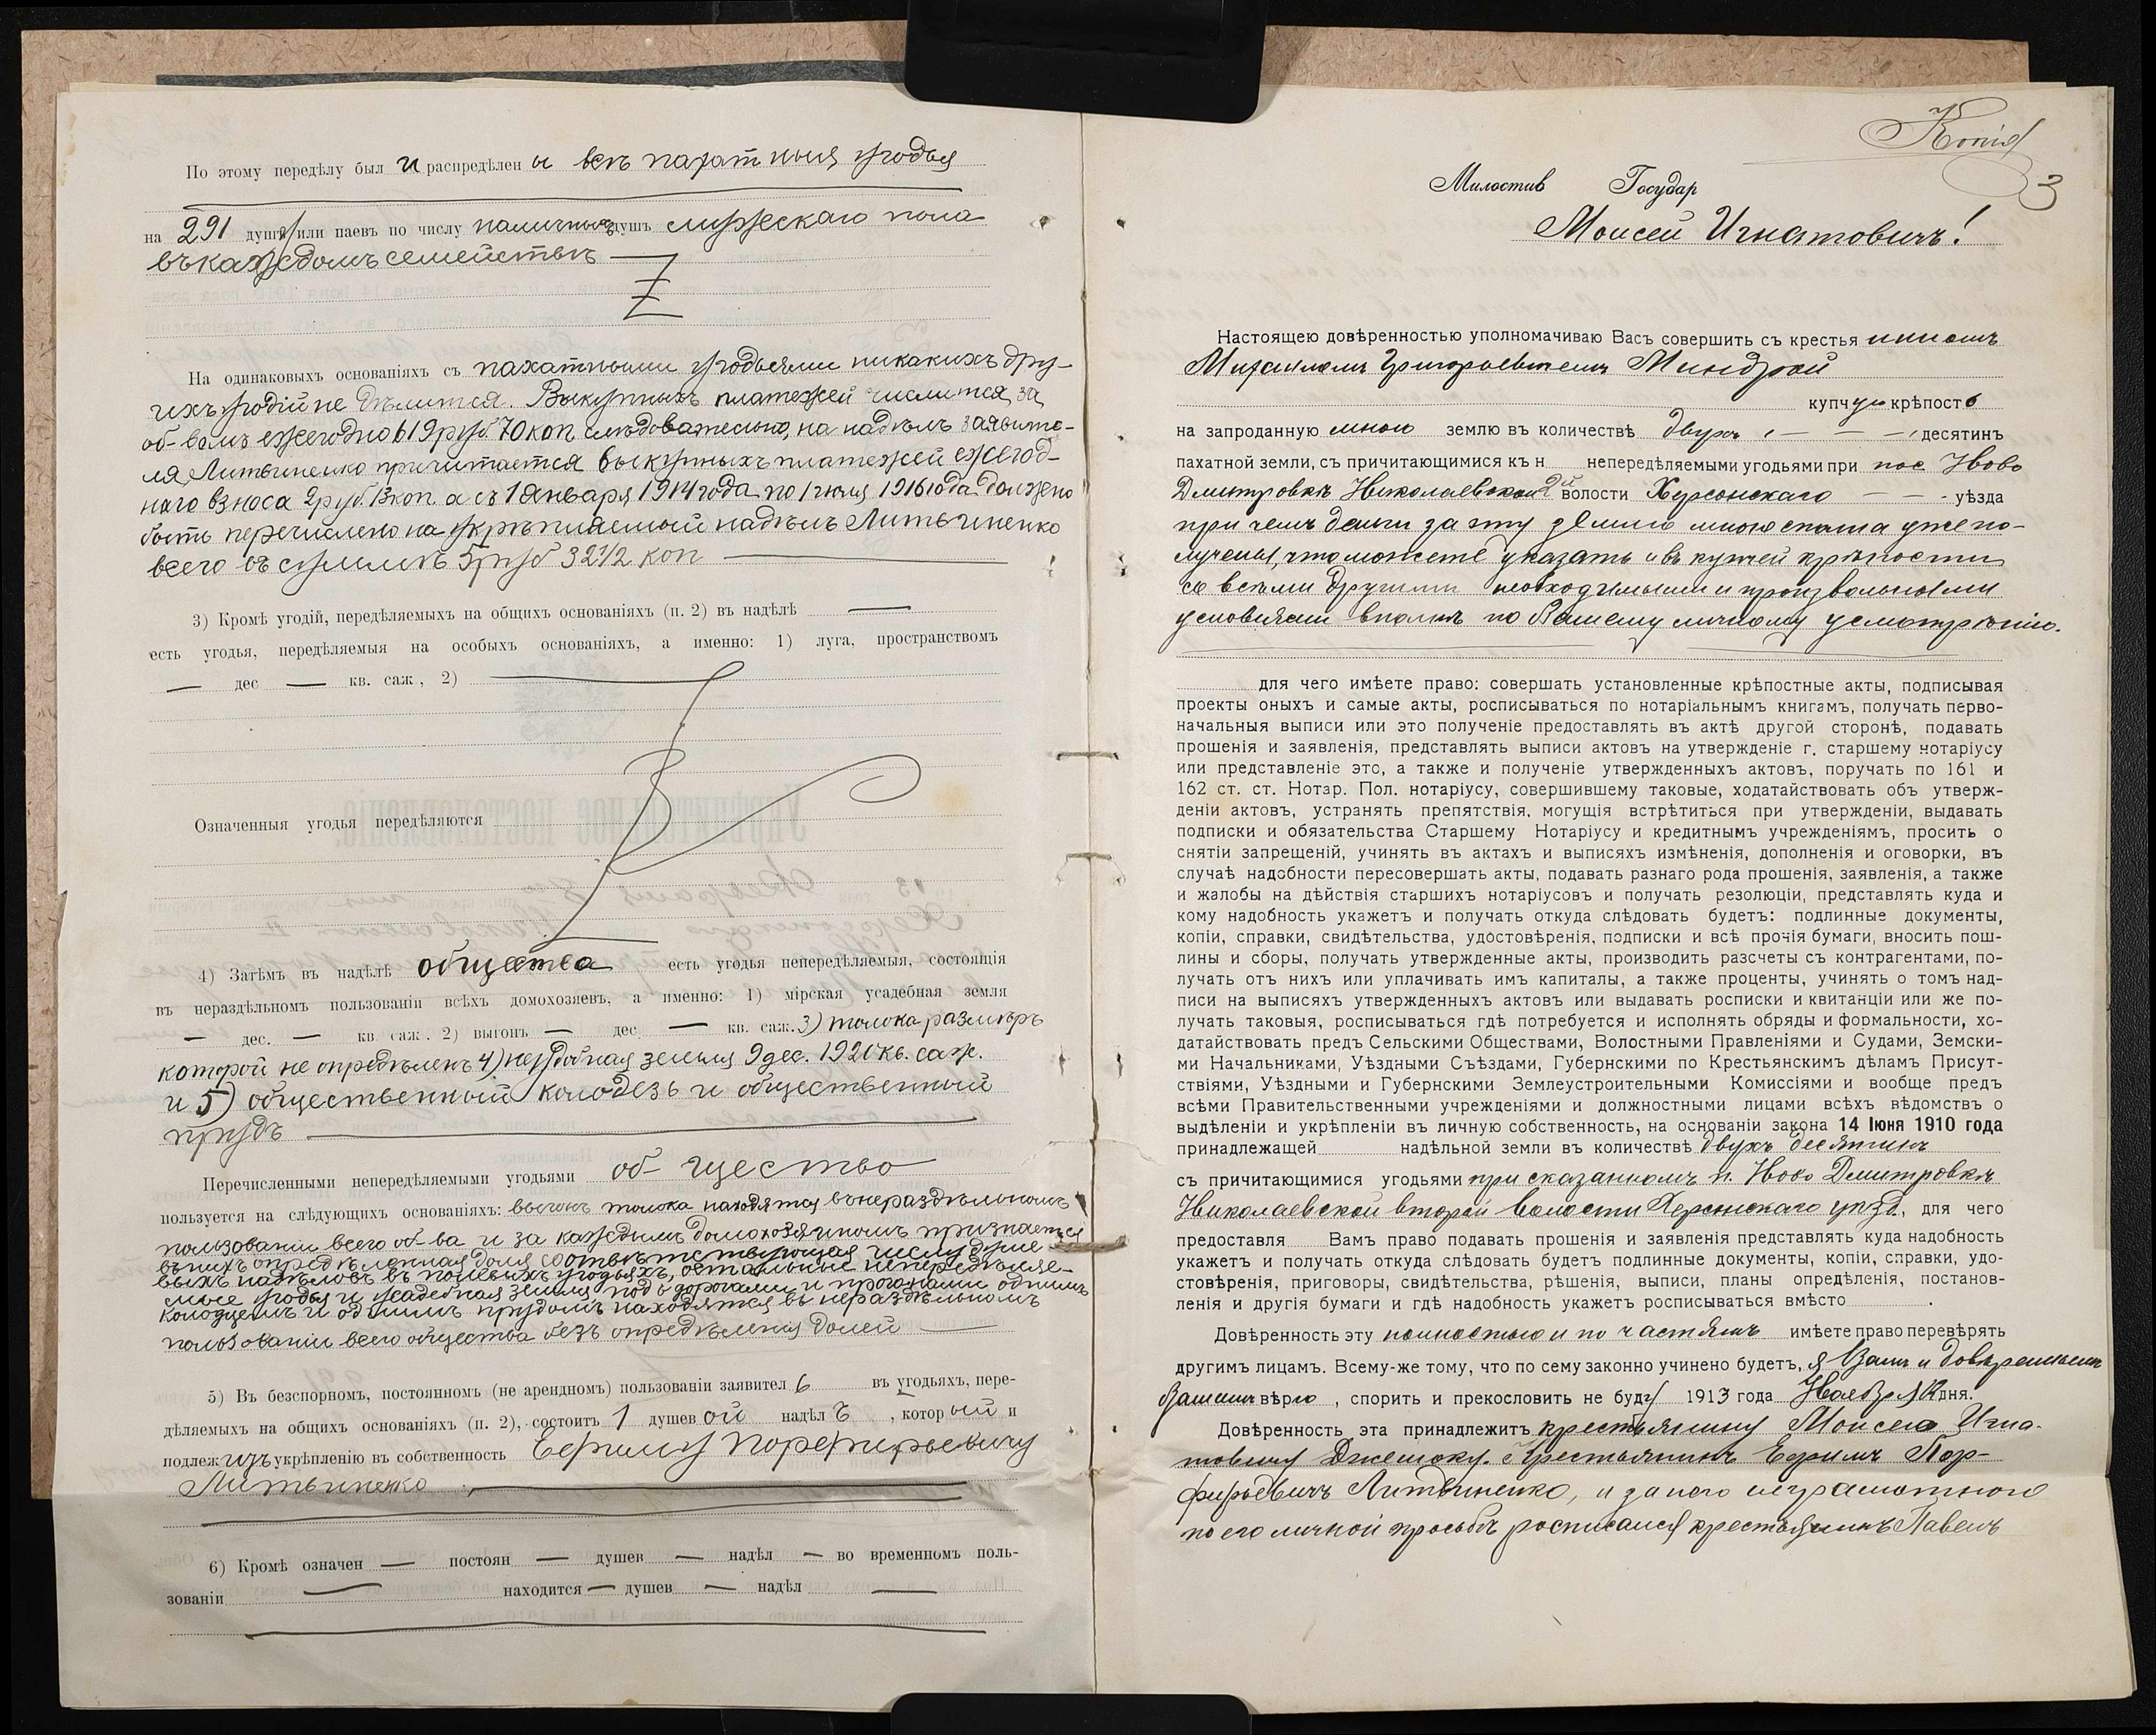 По этому передѣлу был и распредѣлен ы всѣ пахатныя угодья
на 291 душу или паевъ по числу наличныхъ душъ мужескаго пола
въ каждомъ семействѣ
На одинаковыхъ основаніяхъ съ пахатными угодьями никакихъ дру-
ихъ угодій не дѣлится. Выкупныхъ платежей числится за
об-вомъ ежегодно 619 руб. 70 коп. слѣдовательно, на надѣлъ заявите-
ля Литвиненко причитается выкупныхъ платежей ежегод-
наго взноса 2 руб. 13 коп. а съ 1 Января 1914 года по 1 июля 1916 года должно
быть перечислено на укрѣпляемый надѣлъ Литвиненко
всего въ суммѣ 5 руб 32 1/2 коп
3) Кромѣ угодій, передѣляемыхъ на общихъ основаніяхъ (п. 2) въ надѣлѣ —
есть угодья, передѣляемыя на особыхъ основаніяхъ, а именно: 1) луга, пространствомъ
— дес — кв. саж., 2)
Означенныя угодья передѣляются
4) Затѣмъ въ надѣлѣ общества есть угодья непередѣляемыя, состоящія
въ нераздѣльномъ пользованіи всѣхъ домохозяевъ, а именно: 1) мірская усадебная земля
— дес. — кв. саж. 2) выгонъ — дес — кв. саж. 3) толока размѣръ
которой не опредѣленъ 4) неудобная земля 9 дес. 1920 кв. саж.
и 5) общественный колодезь и общественный
прудъ
Перечисленными непередѣляемыми угодьями об-щество
пользуется на слѣдующихъ основаніяхъ: выгонъ толока находятся въ нераздѣльномъ
пользованіи всего об-ва и за каждымъ домохозяиномъ признается
въ нихъ опредѣленная доля соотвѣтствующая числу душе-
выхъ надѣловъ въ полевыхъ угодьяхъ, остальные непередѣляе-
мые угодья и усадебная земля подъ дорогами и прогонами однимъ
колодцемъ и однимъ прудомъ находятся въ нераздѣльномъ
пользованіи всего общества безъ опредѣленія долей
5) Въ безспорномъ, постоянномъ (не арендномъ) пользованіи заявител ѣ въ угодьяхъ, пере-
дѣляемыхъ на общихъ основаніяхъ (п. 2), состоитъ 1 душев ой надѣл ъ, котор ый и
подлежитъ укрѣпленію въ собственность Ефиму Порфирьевичу
Литвиненко
6) Кромѣ означен — постоян — душев — надѣл — во временномъ поль-
зованіи — находится — душев — надѣл —
Копія
3
Милостив Государ
Моисей Игнатовичъ!
Настоящею довѣренностью уполномачиваю Васъ совершить съ крестья ниномъ
Михаиломъ Григорьевичемъ Миндрой
купчую крѣпость
на запроданную мною землю въ количествѣ двухъ — — — десятинъ
пахатной земли, съ причитающимися къ н непередѣляемыми угодьями при пос. Ново
Дмитровкѣ Николаевской 2й волости Херсонскаго — — уѣзда
при чемъ деньги за эту землю мною сполна уже по-
лучены, что можете указать и въ купчей крѣпости
со всѣми другими необходимыми и произвольными
условіями вполнѣ по Вашему личному усмотрѣнію.
для чего имѣете право: совершать установленные крѣпостные акты, подписывая
проекты оныхъ и самые акты, росписываться по нотаріальнымъ книгамъ, получать перво-
начальныя выписи или это полученіе предоставлять въ актѣ другой сторонѣ, подавать
прошенія и заявленія, представлять выписи актовъ на утвержденіе г. старшему нотаріусу
или представленіе это, а также и полученіе утвержденныхъ актовъ, поручать по 161 и
162 ст. ст. Нотар. Пол. нотаріусу, совершившему таковые, ходатайствовать объ утверж-
деніи актовъ, устранять препятствія, могущія встрѣтиться при утвержденіи, выдавать
подписки и обязательства Старшему Нотаріусу и кредитнымъ учрежденіямъ, просить о
снятіи запрещеній, учинять въ актахъ и выписяхъ измѣненія, дополненія и оговорки, въ
случаѣ надобности пересовершать акты, подавать разнаго рода прошенія, заявленія, а также
и жалобы на дѣйствія старшихъ нотаріусовъ и получать резолюціи, представлять куда и
кому надобность укажетъ и получать откуда слѣдовать будетъ: подлинные документы,
копіи, справки, свидѣтельства, удостовѣренія, подписки и всѣ прочія бумаги, вносить пош-
лины и сборы, получать утвержденные акты, производить разсчеты съ контрагентами, по-
лучать отъ нихъ или уплачивать имъ капиталы, а также проценты, учинять о томъ над-
писи на выписяхъ утвержденныхъ актовъ или выдавать росписки и квитанціи или же по-
лучать таковыя, росписываться гдѣ потребуется и исполнять обряды и формальности, хо-
датайствовать предъ Сельскими Обществами, Волостными Правленіями и Судами, Земски-
ми Начальниками, Уѣздными Съѣздами, Губернскими по Крестьянскимъ дѣламъ Присут-
ствіями, Уѣздными и Губернскими Землеустроительными Комиссіями и вообще предъ
всѣми Правительственными учрежденіями и должностными лицами всѣхъ вѣдомствъ о
выдѣленіи и укрѣпленіи въ личную собственность, на основаніи закона 14 Іюня 1910 года
принадлежащей надѣльной земли въ количествѣ двухъ десятинъ
съ причитающимися угодьями при сказанномъ п. Ново Дмитровкѣ
Николаевской второй волости Херсонскаго уѣзд., для чего
предоставля Вамъ право подавать прошенія и заявленія представлять куда надобность
укажетъ и получать откуда слѣдовать будетъ подлинные документы, копіи, справки, удо-
стовѣренія, приговоры, свидѣтельства, рѣшенія, выписи, планы опредѣленія, постанов-
ленія и другія бумаги и гдѣ надобность укажетъ росписываться вмѣсто .
Довѣренность эту полностью и по частямъ имѣете право перевѣрять
другимъ лицамъ. Всему-же тому, что по сему законно учинено будетъ, я Вамъ и довѣреннымъ
Вашимъ вѣрю, спорить и прекословить не буду 1913 года Ноября 12 дня.
Довѣренность эта принадлежитъ крестьянину Моисею Игна-
товичу Джемоку. Крестьянинъ Ефимъ Пор-
фирьевичъ Литвиненко, и за него неграмотного
по его личной просьбѣ росписался крестьянинъ Павелъ